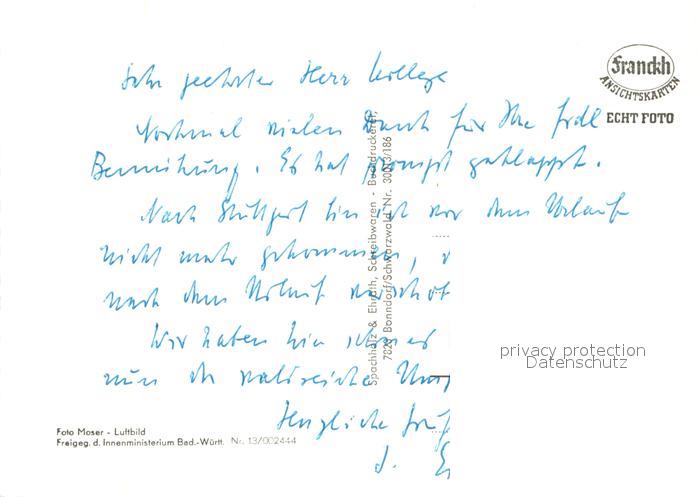 Sehr geehrter Herr Kollege
Nochmal vielen Dank für Ihre frdl
Bemühung. Es hat prompt geklappt.
Nach Stuttgart bin ich vor dem Urlaub
nicht mehr gekommen,
nach dem Urlaub
Wir haben hier
die waldreiche
Herzliche
Franckh
ANSICHTSKARTEN
ECHT FOTO
Spachholz & Ehrath, Schreibwaren - Buchdruckerei,
7823 Bonndorf/Schwarzwald Nr.
privacy protection
Datenschutz
Foto Moser - Luftbild
Freigeg. d. Innenministerium Bad.-Württ. Nr. 13/002444